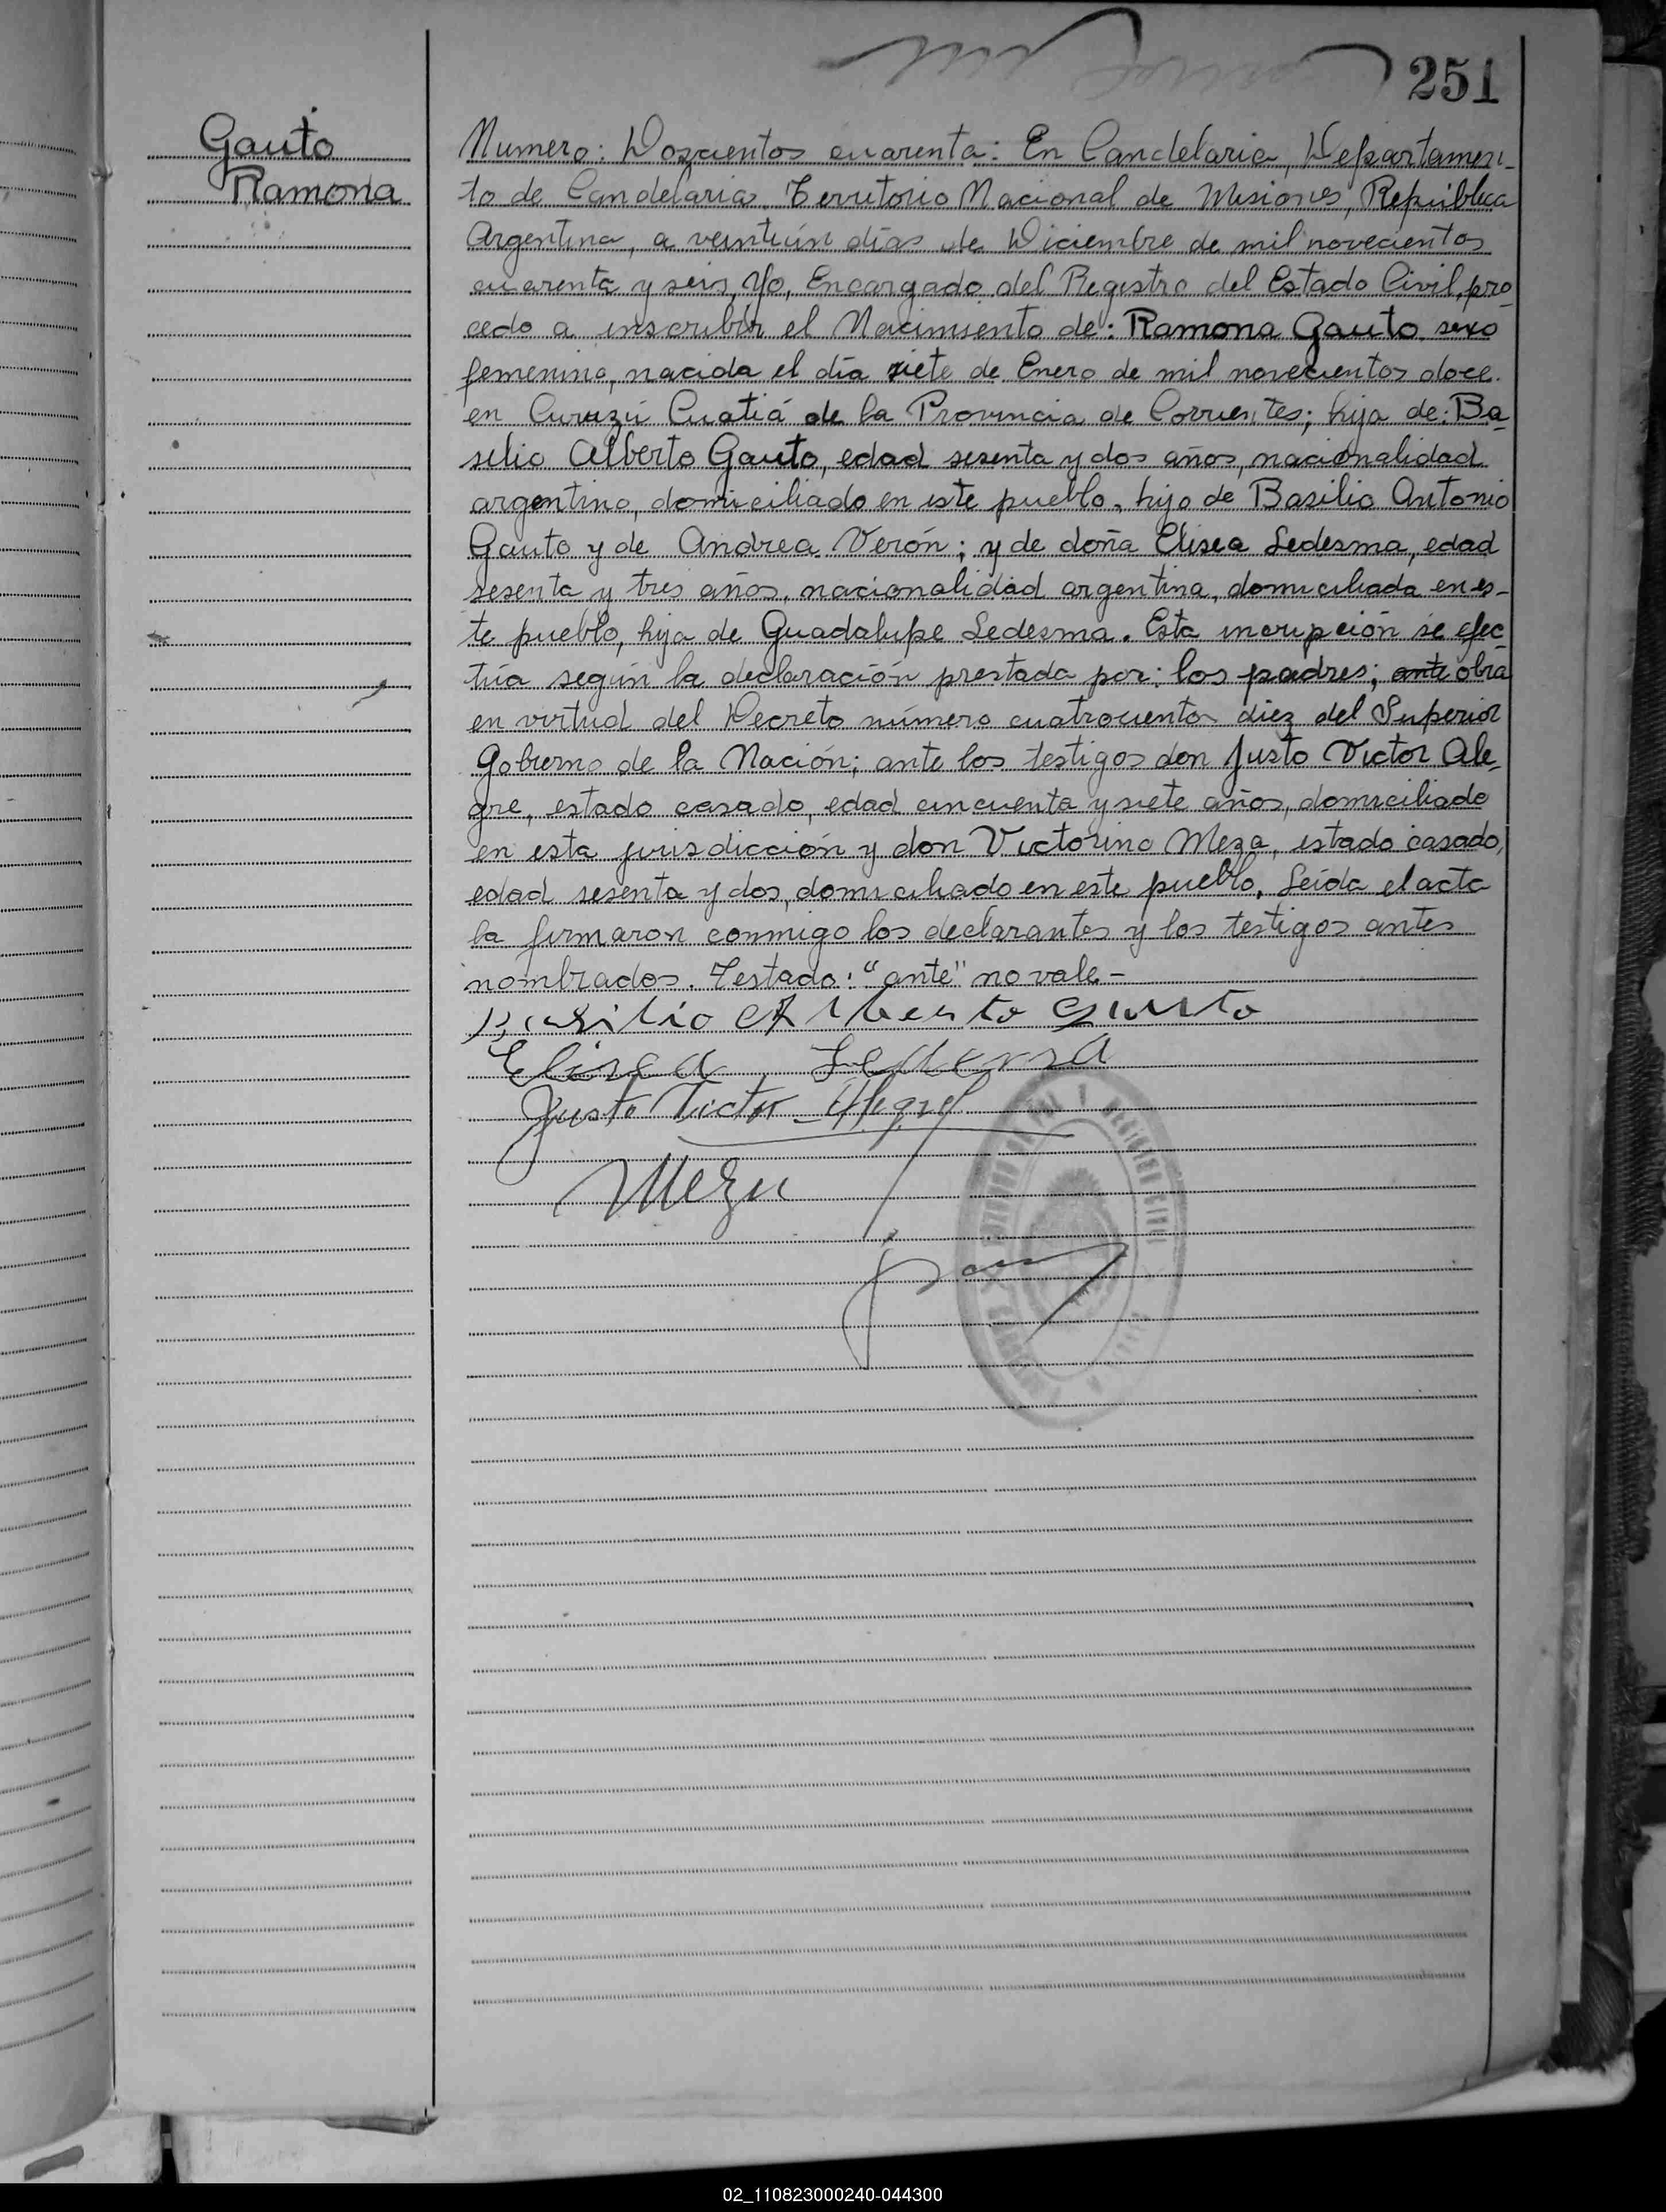 251
Gauto
Ramona
Numero: Doscientos cuarenta: En Candelaria, Departamen-
to de Candelaria, Territorio Nacional de Misiones, República
Argentina, a veintiún días de Diciembre de mil novecientos
cuarenta y seis, Yo, Encargado del Registro del Estado Civil, pro
cedo a inscribir el Nacimiento de: Ramona Gauto, sexo
femenino, nacida el día siete de Enero de mil novecientos doce.
en Curuzú Cuatiá de la Provincia de Corrientes; hija de: Ba-
silio Alberto Gauto, edad sesenta y dos años, nacionalidad
argentino, domiciliado en este pueblo, hijo de Basilio Antonio
Gauto y de Andrea Verón; y de doña Elisea Ledesma, edad
sesenta y tres años, nacionalidad argentina, domiciliada en es-
te pueblo, hija de Guadalupe Ledesma. Esta incripción se efec
túa según la declaración prestada por: los padres; ante obra
en virtud del Decreto número cuatrocientos diez del Superior
Gobierno de la Nación; ante los testigos don Justo Victor Ale-
gre, estado casado, edad cincuenta y siete años, domiciliado
en esta jurisdicción y don Victorino Meza, estado casado,
edad sesenta y dos, domiciliado en este pueblo. Leída el acta
la firmaron conmigo los declarantes y los testigos antes
nombrados. Testado: "ante" no vale-
Basilio Alberto Gauto
Elisea Ledesma
Justo Victor Alegre
Meza
02_110823000240-044300